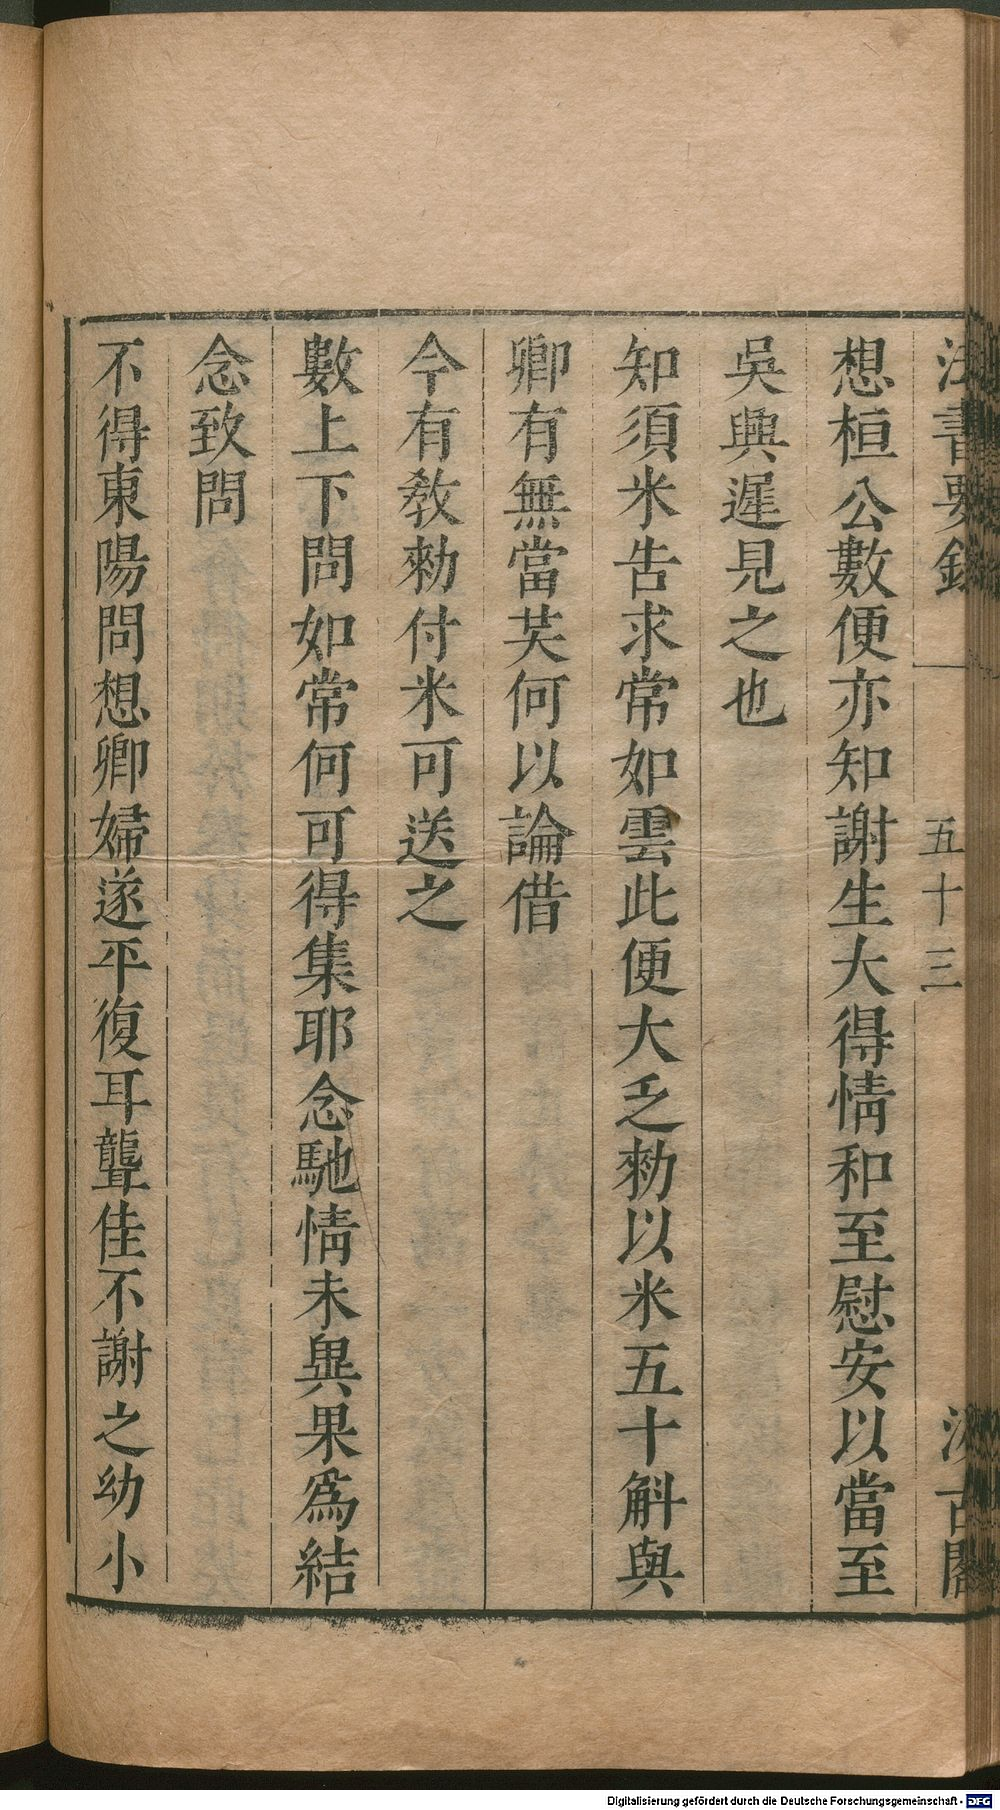 法書要錄 五十三 汲古閣
想桓公數便亦知謝生大得情和至慰安以當至
吳興遲見之也
知須米告求常如雲此便大乏勑以米五十斛與
卿有無當共何以論借
今有教勑付米可送之
數上下問如常何可得集耶念馳情未異果爲結
念致問
不得東陽問想卿婦遂平復耳聾佳不謝之幼小
Digitalisierung gefördert durch die Deutsche Forschungsgemeinschaft - DFG